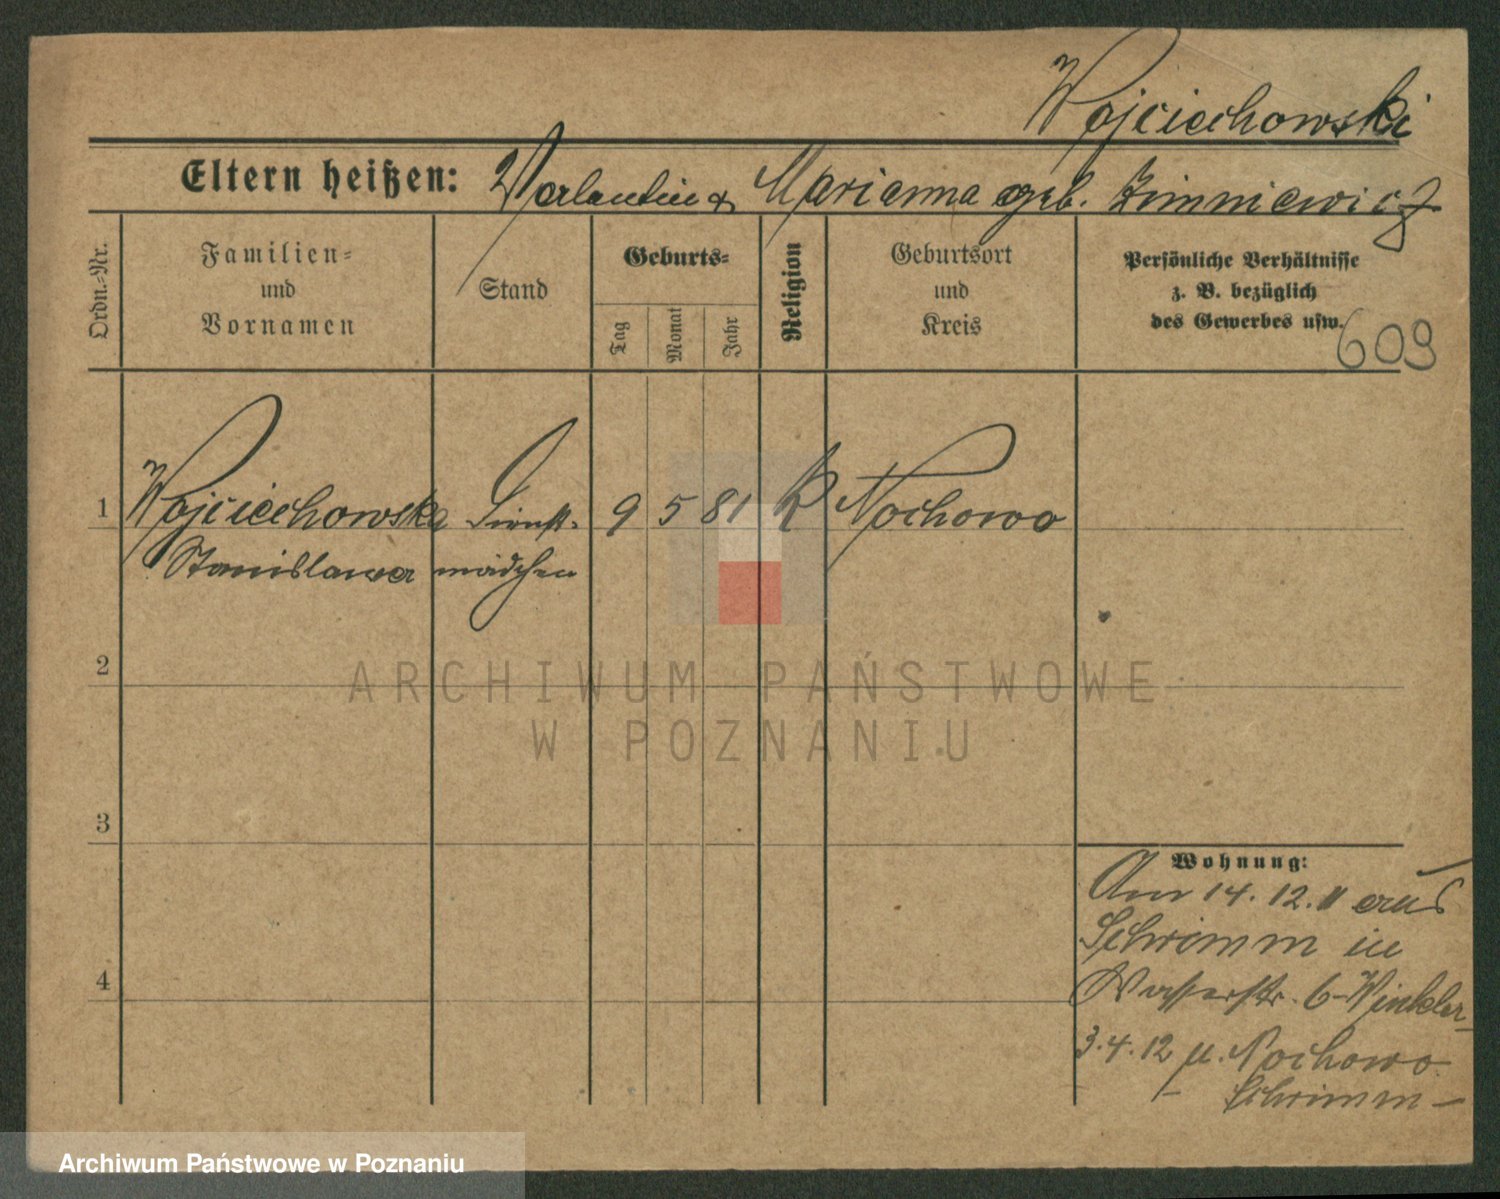 Wojciechowski
Eltern heißen: Valentin & Marianna geb. Zimniewicz
Ordn.-Nr.
Familien-
und
Vornamen
Stand
Geburts-
Tag
Monat
Jahr
Religion
Geburtsort
und
Kreis
Persönliche Verhältnisse
z. B. bezüglich
des Gewerbes usw.
609
1 Wojciechowska Dienst- 9 5 81 K Nochowo
Stanislawa mädchen
2
3
4
Wohnung:
Am 14. 12. 11 aus
Schrimm in
Wasserstr. 6 - Winkler -
3.4.12 u. Nochowo
Schrimm -
ARCHIWUM PAŃSTWOWE
W POZNANIU
Archiwum Państwowe w Poznaniu